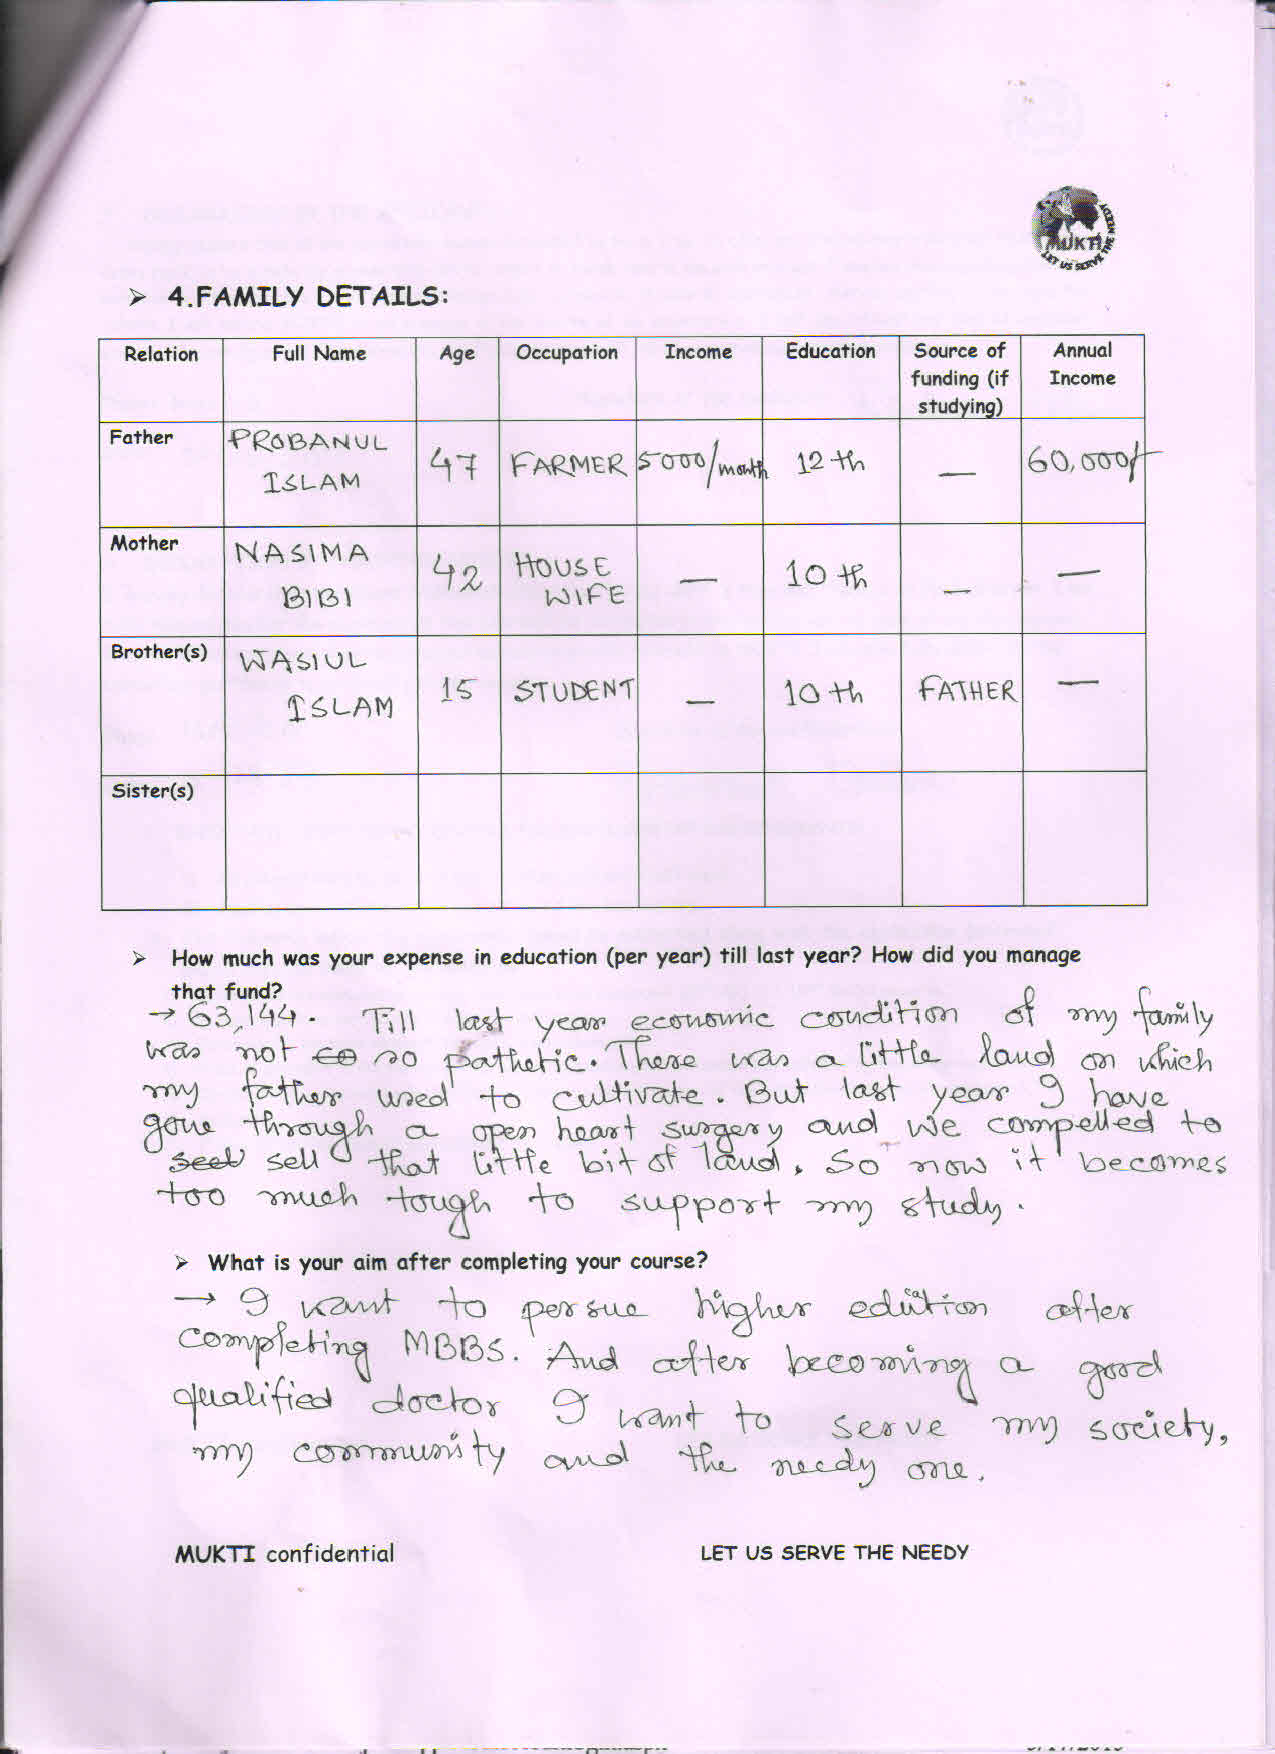 MUKTI
LET US SERVE THE NEEDY
➤ 4.FAMILY DETAILS:
Relation Full Name Age Occupation Income Education Source of funding (if studying) Annual Income
Father PROBANUL ISLAM 47 FARMER 5000/month 12th — 60,000/-
Mother NASIMA BIBI 42 HOUSE WIFE — 10th — —
Brother(s) WASIUL ISLAM 15 STUDENT — 10th FATHER —
Sister(s)
➤ How much was your expense in education (per year) till last year? How did you manage
that fund?
→ 63,144. Till last year economic condition of my family
was not so pathetic. There was a little land on which
my father used to cultivate. But last year I have
gone through a open heart surgery and we compelled to
sell that little bit of land. So now it becomes
too much tough to support my study.
➤ What is your aim after completing your course?
→ I want to persue higher education after
completing MBBS. And after becoming a good
qualified doctor I want to serve my society,
my community and the needy one.
MUKTI confidential LET US SERVE THE NEEDY